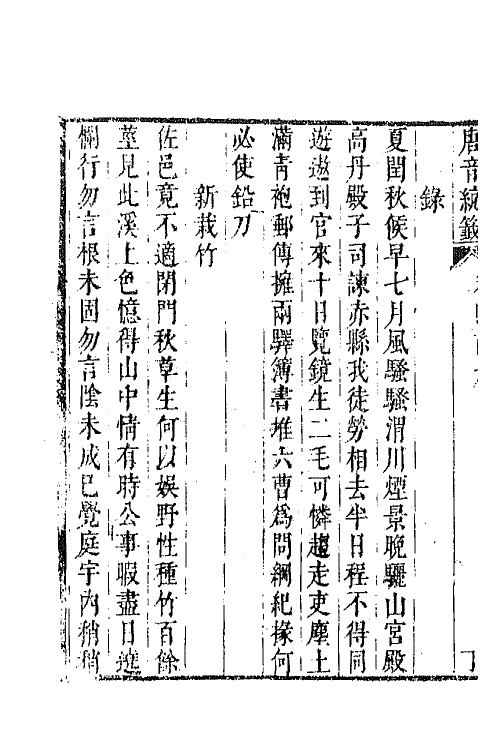 唐音統籤
錄
夏閏秋候早七月風騷騷渭川煙景晚驪山宮殿
高丹殿子司諫赤縣我徒勞相去半日程不得同
遊遨到官來十日覽鏡生二毛可憐趨走吏塵土
滿青袍郵傳擁兩驛簿書堆六曹爲問綱紀掾何
必使鉛刀
新栽竹
佐邑竟不適閉門秋草生何以娛野性種竹百餘
莖見此溪上色憶得山中情有時公事暇盡日遶
欄行勿言根未固勿言陰未成已覺庭宇內稍稍